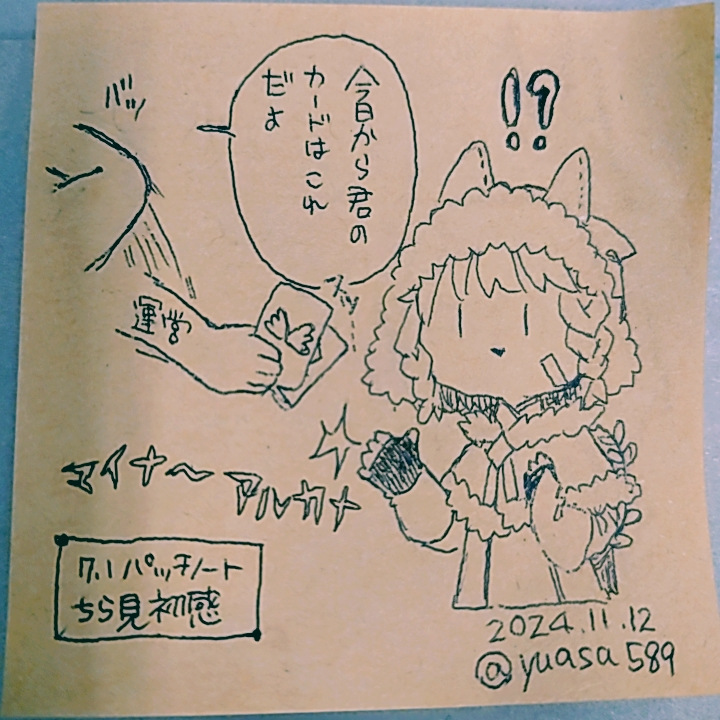 !?
バッ
今日から君の
カードはこれ
だよ
運営
スッ
マイナ～
アルカナ
7.1パッチノート
ちら見初感
2024.11.12
@yuasa589